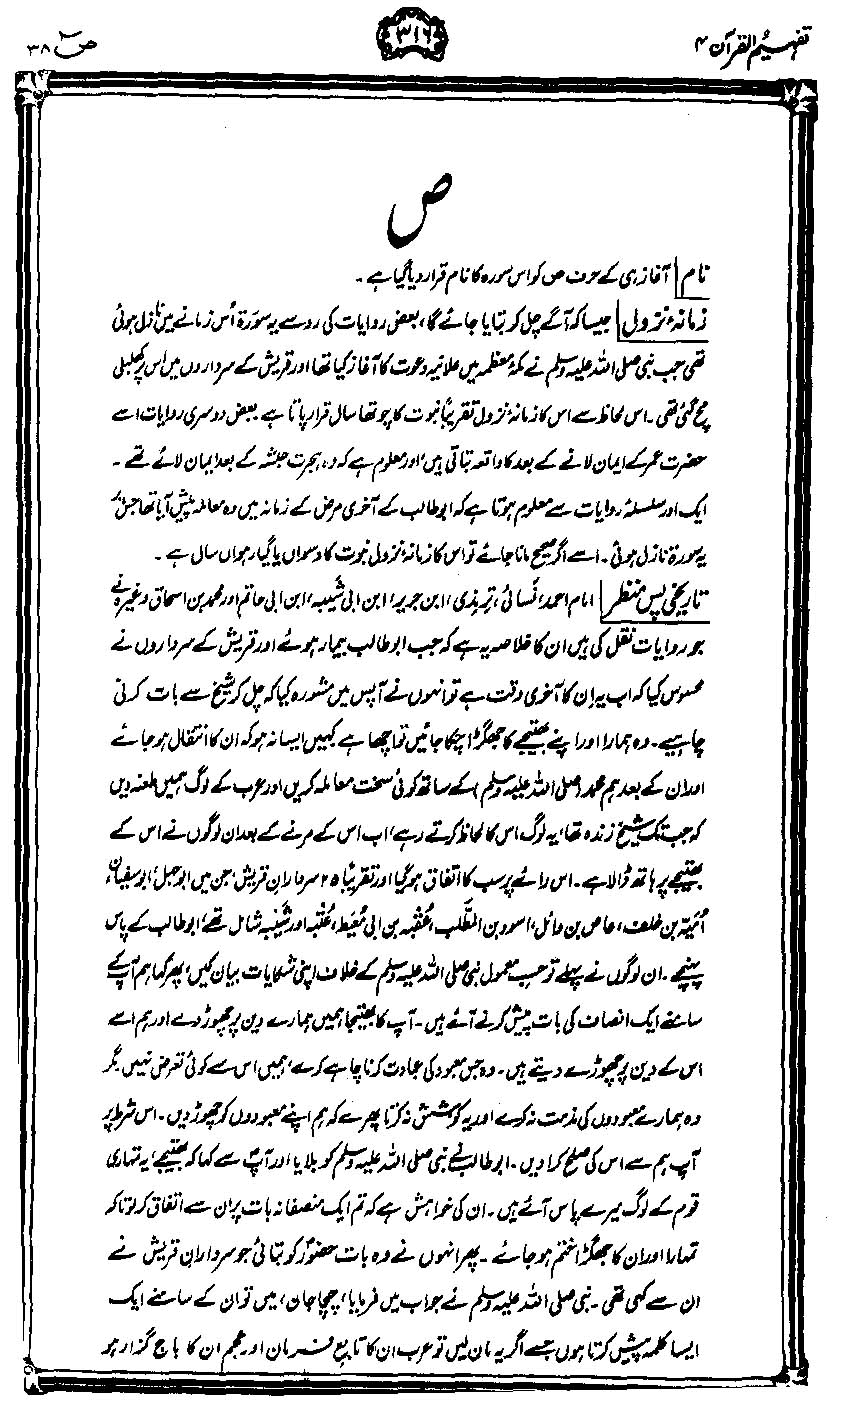 تفہیم القرآن ۴
۳۱۶
ص ۳۸
ص
نام آغاز ہی کے حرف ص کو اس سورہ کا نام قرار دیا گیا ہے۔
زمانۂ نزول جیسا کہ آگے چل کر بتایا جائے گا، بعض روایات کی رو سے یہ سورۃ اُس زمانے میں نازل ہوئی
تھی جب نبی صلی اللہ علیہ وسلم نے مکۂ معظمہ میں علانیہ دعوت کا آغاز کیا تھا اور قریش کے سرداروں میں اس پر کھلبلی
مچ گئی تھی۔ اس لحاظ سے اس کا زمانۂ نزول تقریباً نبوت کا چوتھا سال قرار پاتا ہے۔ بعض دوسری روایات اسے
حضرت عمر کے ایمان لانے کے بعد کا واقعہ بتاتی ہیں، اور معلوم ہے کہ وہ ہجرت حبشہ کے بعد ایمان لائے تھے۔
ایک اور سلسلۂ روایات سے معلوم ہوتا ہے کہ ابو طالب کے آخری مرض کے زمانہ میں وہ معاملہ پیش آیا تھا جس پر
یہ سورۃ نازل ہوئی۔ اسے اگر صحیح مانا جائے تو اس کا زمانۂ نزول نبوت کا دسواں یا گیارہواں سال ہے۔
تاریخی پس منظر امام احمد، نسائی، ترمذی، ابن جریر، ابن ابی شیبہ، ابن ابی حاتم اور محمد بن اسحاق وغیرہ نے
جو روایات نقل کی ہیں ان کا خلاصہ یہ ہے کہ جب ابو طالب بیمار ہوئے اور قریش کے سرداروں نے
محسوس کیا کہ اب یہ ان کا آخری وقت ہے تو انہوں نے آپس میں مشورہ کیا کہ چل کر شیخ سے بات کرنی
چاہیے۔ وہ ہمارا اور اپنے بھتیجے کا جھگڑا چکا جائیں تو اچھا ہے۔ کہیں ایسا نہ ہو کہ ان کا انتقال ہو جائے
اور ان کے بعد ہم محمد (صلی اللہ علیہ وسلم) کے ساتھ کوئی سخت معاملہ کریں اور عرب کے لوگ ہمیں طعنہ دیں
کہ جب تک شیخ زندہ تھا، یہ لوگ اس کا لحاظ کرتے رہے، اب اس کے مرنے کے بعد ان لوگوں نے اس کے
بھتیجے پر ہاتھ ڈالا ہے۔ اس رائے پر سب کا اتفاق ہوگیا اور تقریباً ۲۵ سردارانِ قریش، جن میں ابوجہل، ابوسفیان،
اُمَیّہ بن خلف، عاص بن وائل، اسود بن المطّلب، عُقبہ بن ابی مُعَیط، عُتبہ اور شَیبہ شامل تھے، ابو طالب کے پاس
پہنچے۔ ان لوگوں نے پہلے تو حسب معمول نبی صلی اللہ علیہ وسلم کے خلاف اپنی شکایات بیان کیں، پھر کہا ہم آپ کے
سامنے ایک انصاف کی بات پیش کرنے آئے ہیں۔ آپ کا بھتیجا ہمیں ہمارے دین پر چھوڑ دے اور ہم اسے
اس کے دین پر چھوڑے دیتے ہیں۔ وہ جس معبود کی عبادت کرنا چاہے کرے، ہمیں اس سے کوئی تعرض نہیں۔ مگر
وہ ہمارے معبودوں کی مذمت نہ کرے اور یہ کوشش نہ کرتا پھرے کہ ہم اپنے معبودوں کو چھوڑ دیں۔ اس شرط پر
آپ ہم سے اس کی صلح کرا دیں۔ ابو طالب نے نبی صلی اللہ علیہ وسلم کو بلایا اور آپ سے کہا کہ بھتیجے، یہ تمہاری
قوم کے لوگ میرے پاس آئے ہیں۔ ان کی خواہش ہے کہ تم ایک منصفانہ بات پر ان سے اتفاق کر لو تاکہ
تمہارا اور ان کا جھگڑا ختم ہو جائے۔ پھر انہوں نے وہ بات حضورؐ کو بتائی جو سردارانِ قریش نے
ان سے کہی تھی۔ نبی صلی اللہ علیہ وسلم نے جواب میں فرمایا، چچا جان، میں تو ان کے سامنے ایک
ایسا کلمہ پیش کرتا ہوں جسے اگر یہ مان لیں تو عرب ان کا تابع فرمان اور عجم ان کا باج گزار ہو